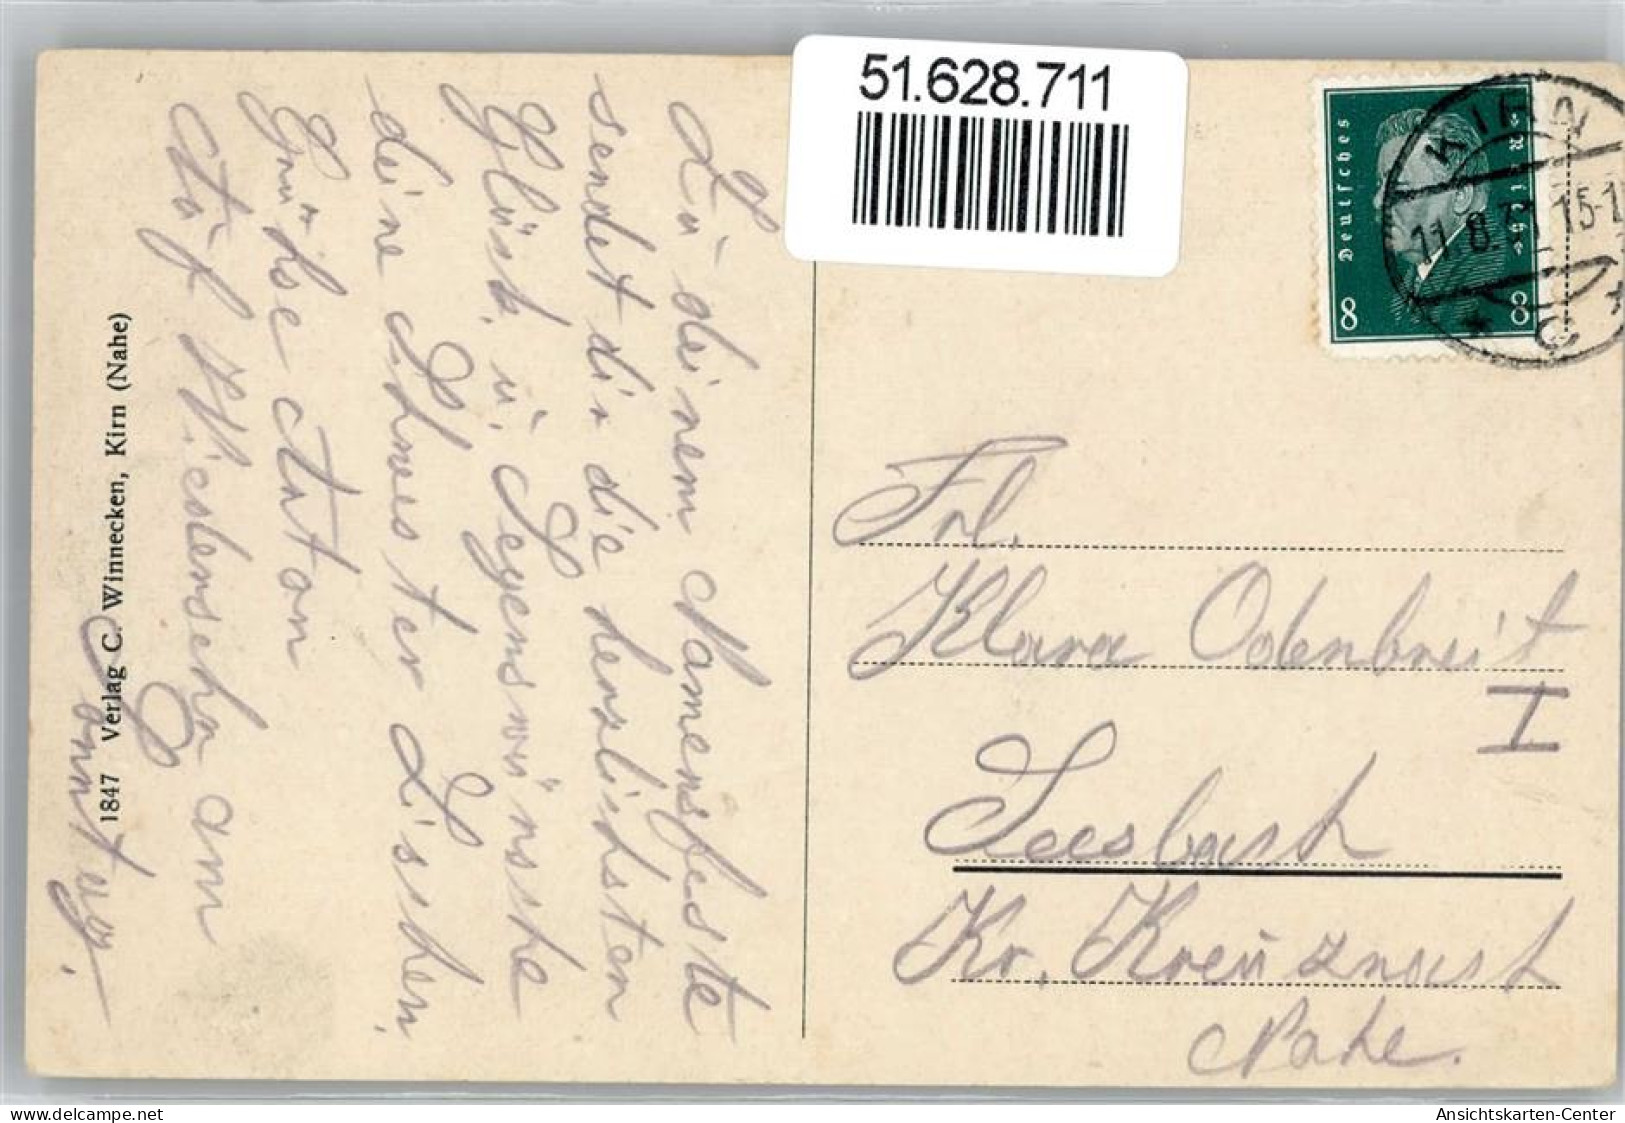 51.628.711
Zu deinem Namensfeste
sendet dir die herzlichsten
Glück. ü. Segenswünsche
deine Schwester Lisschen.
Grüße Anton
Auf Wiedersehn am
Sonntag.
1847 Verlag C. Winnecken, Kirn (Nahe)
Deutsches Reich
8 8
KIRN
11.8.31 15-1
C
Frl.
Klara Odenbreit
I
Seesbach
Kr. Kreüznach
Nahe.
www.delcampe.net
the-rfc
Ansichtskarten-Center